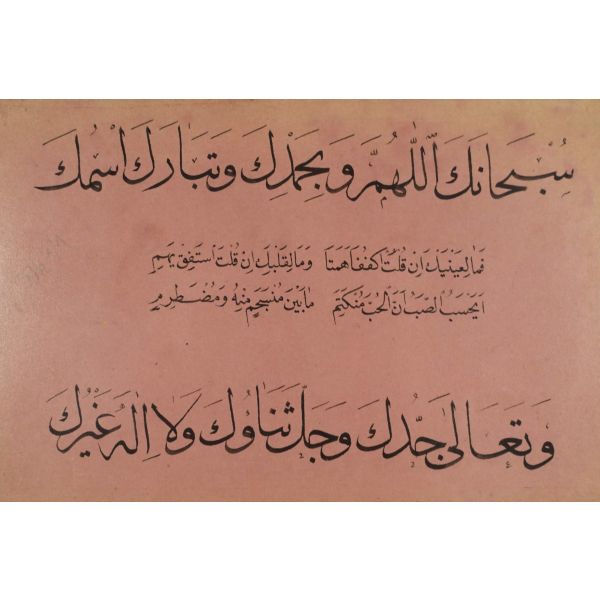 سُبْحَانَكَ اَللّٰهُمَّ وَبِحَمْدِكَ وَتَبَارَكَ اسْمُكَ
فَمَا لِعَيْنَيْكَ اِنْ قُلْتَ اكْفُفَا هَمَتَا وَمَا لِقَلْبِكَ اِنْ قُلْتَ اسْتَفِقْ يَهِمِ
اَيَحْسَبُ الصَّبُّ اَنَّ الْحُبَّ مُنْكَتِمٌ مَا بَيْنَ مُنْسَجِمٍ مِنْهُ وَمُضْطَرِمِ
وَتَعَالٰى جَدُّكَ وَجَلَّ ثَنَاؤُكَ وَلَا اِلٰهَ غَيْرُكَ